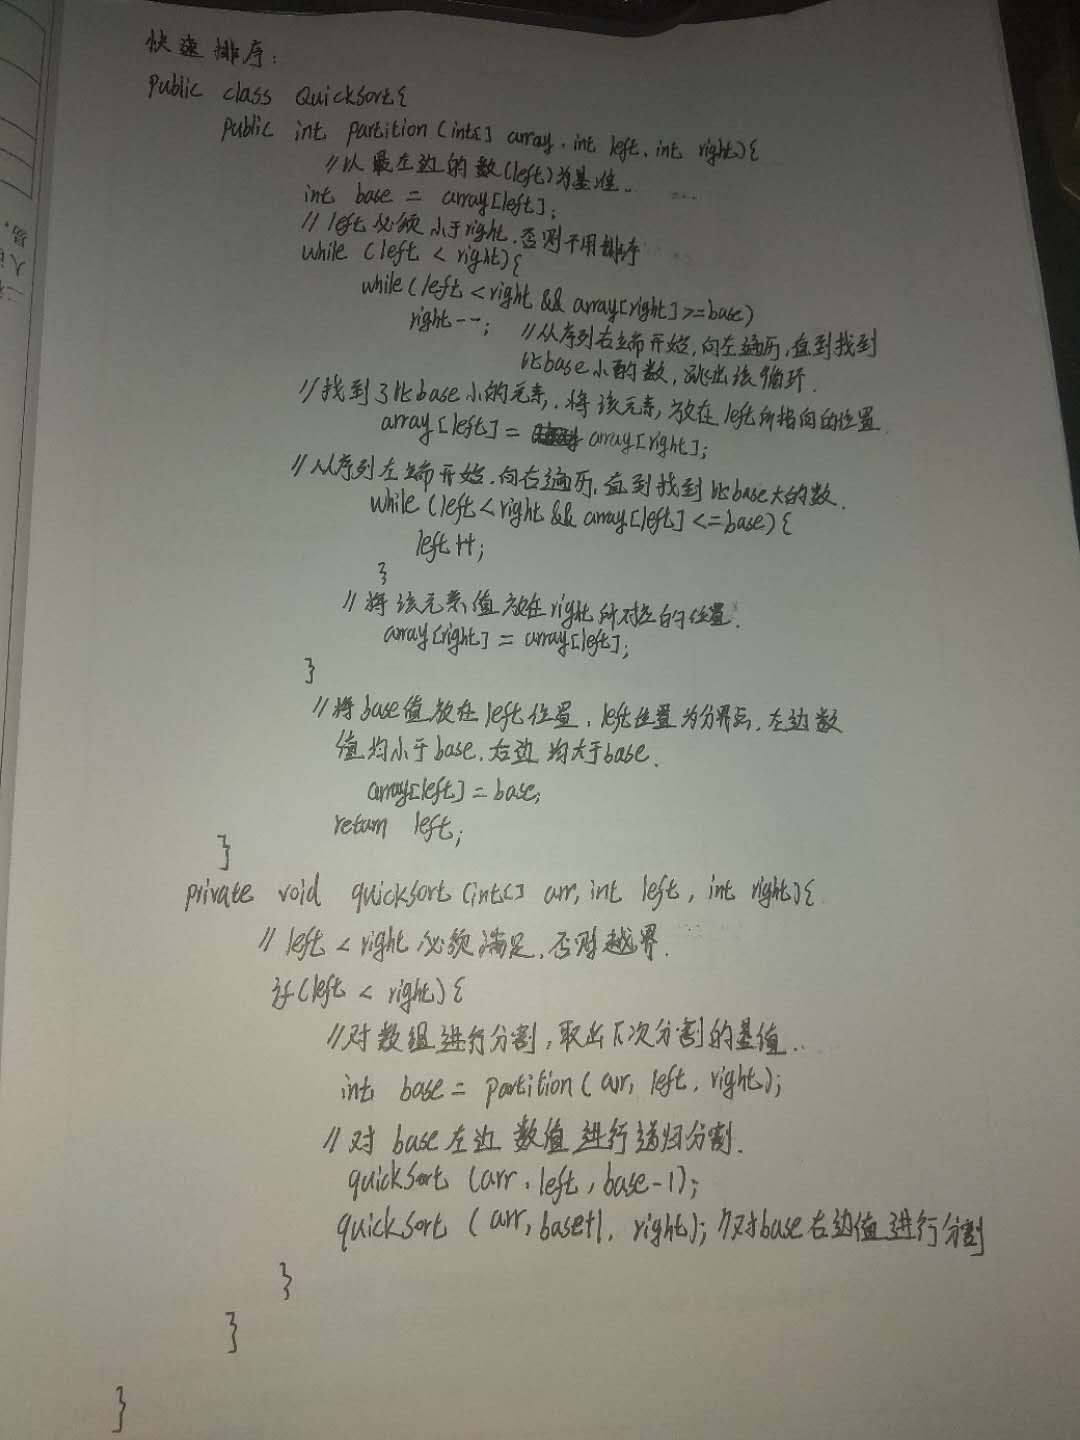 快速排序:
Public class QuickSort{
Public int partition (int[] array, int left, int right){
//以最左边的数(left)为基准.
int base = array[left];
// left必须小于right,否则不用排序
while (left < right){
while(left < right && array[right] >= base)
right--; //从序列右端开始,向左遍历,直到找到
比base小的数,跳出该循环.
//找到了比base小的元素,将该元素,放在left所指向的位置
array[left] = array[right];
//从序列左端开始,向右遍历,直到找到比base大的数.
while (left < right && array[left] <= base){
left++;
}
//将该元素值放在right所对应的位置.
array[right] = array[left];
}
//将base值放在left位置,left位置为分界点,左边数
值均小于base,右边均大于base.
array[left] = base;
return left;
}
private void quickSort (int[] arr, int left, int right){
// left < right 必须满足,否则越界.
if(left < right){
//对数组进行分割,取出下次分割的基值..
int base = partition (arr, left, right);
//对base左边数值进行递归分割.
quickSort (arr, left, base-1);
quickSort (arr, base+1, right); //对base右边值进行分割
}
}
}